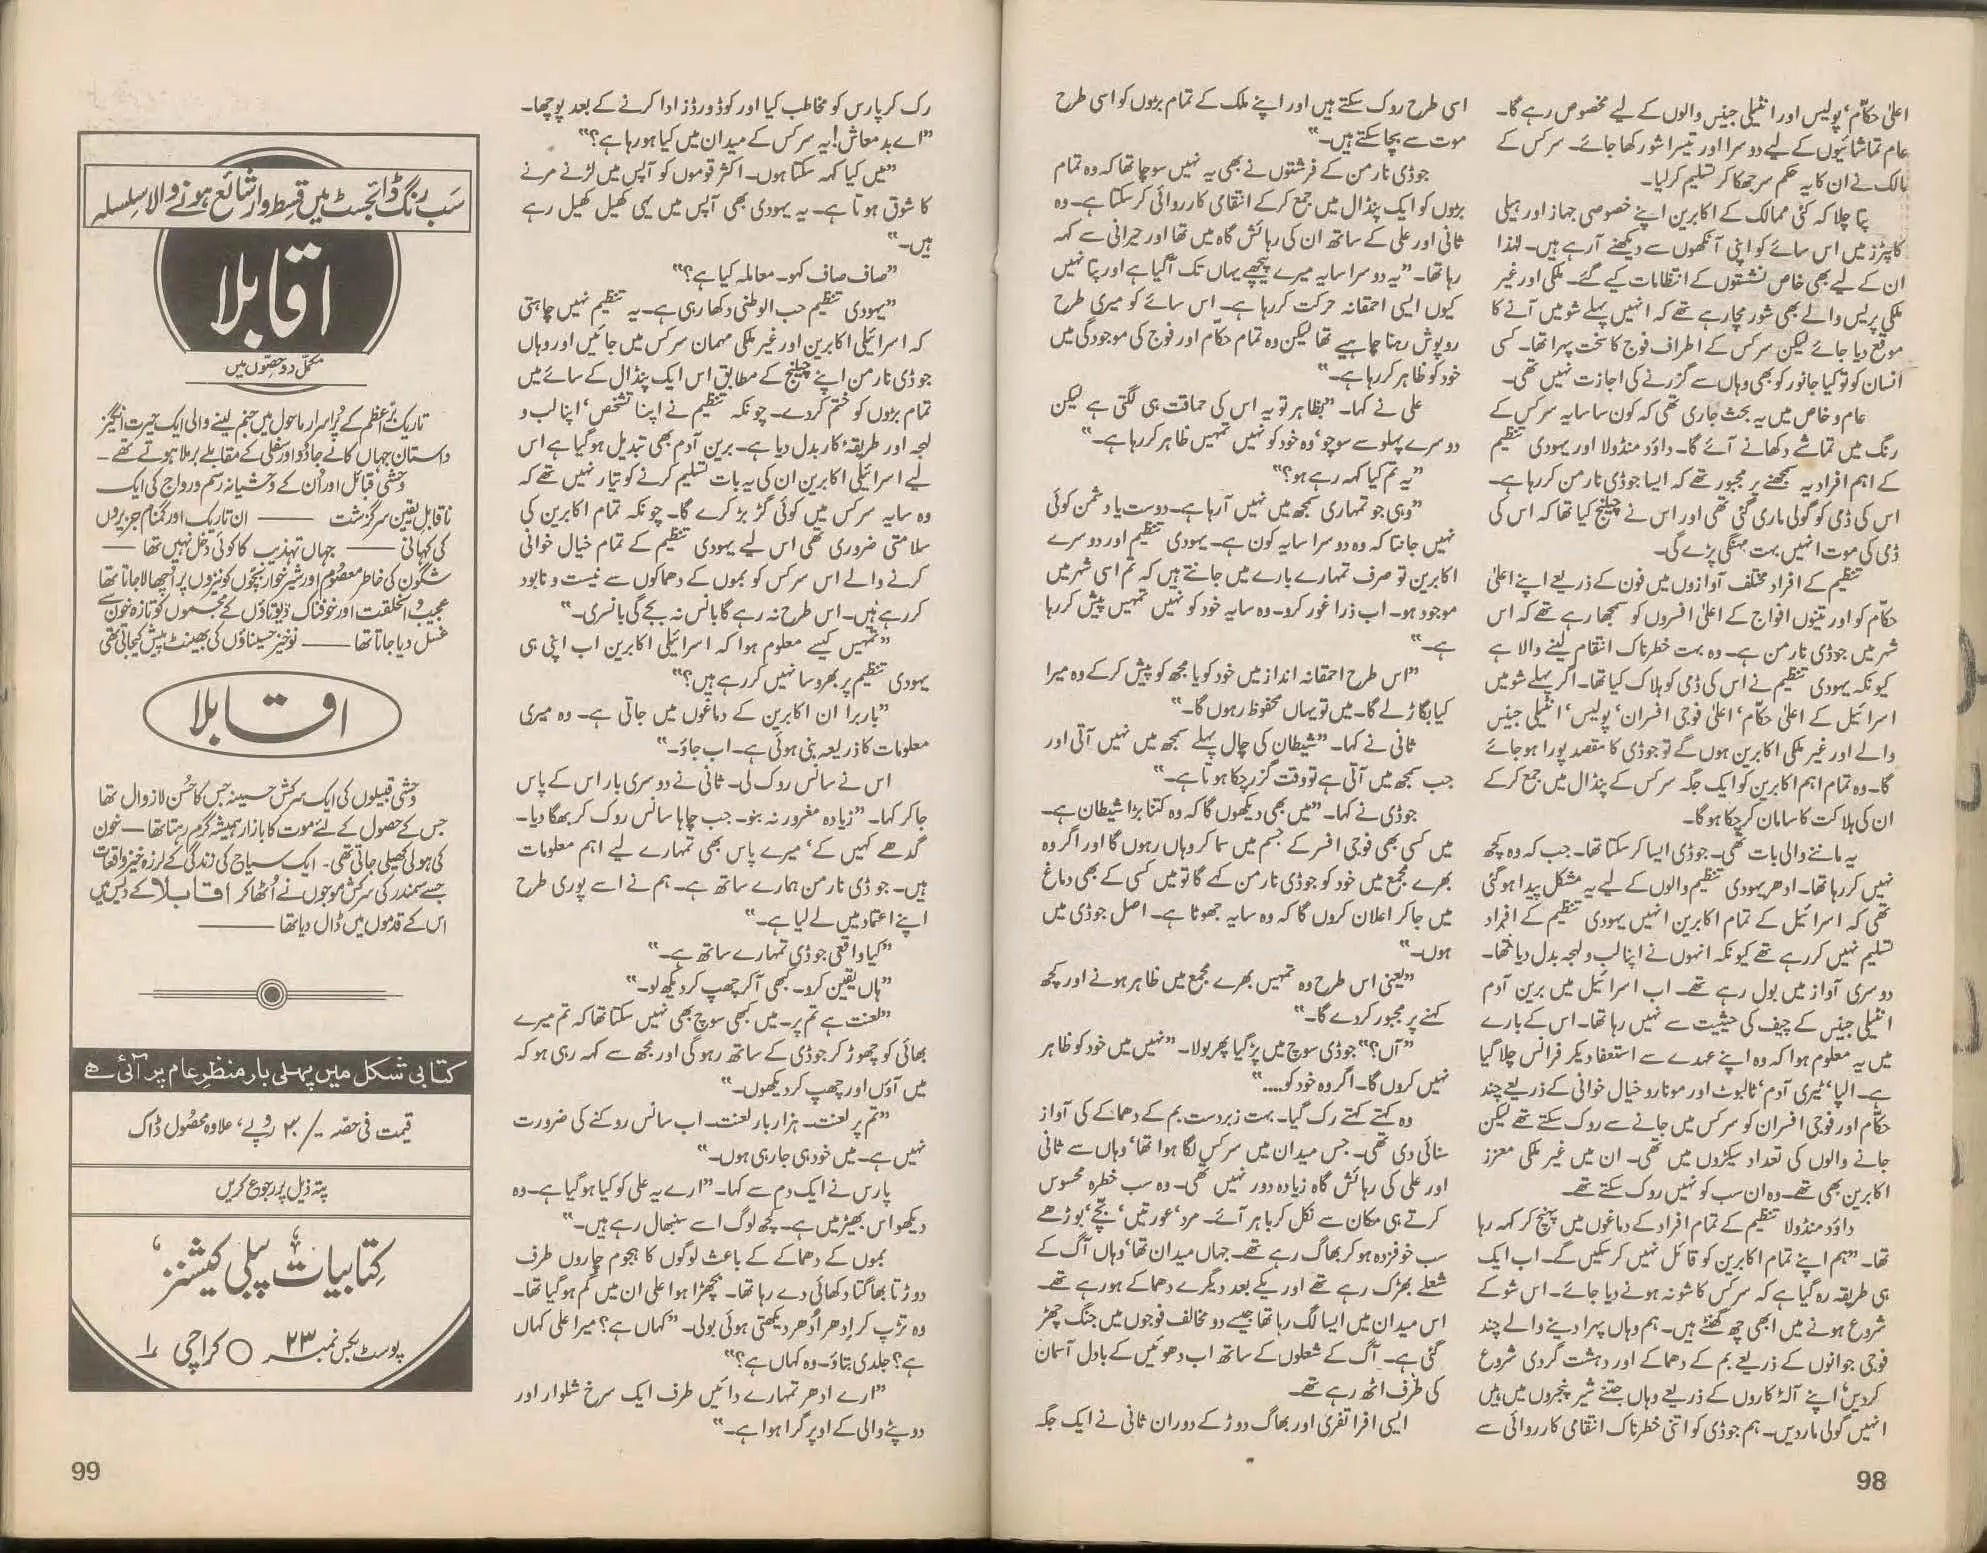 اعلیٰ حکام، پولیس اور انٹیلی جینس والوں کے لیے مخصوص رہے گا۔
عام تماشائیوں کے لیے دوسرا اور تیسرا شو رکھا جائے۔ سرکس کے
مالک نے ان کا یہ حکم سر جھکا کر تسلیم کر لیا۔
پتا چلا کہ کئی ممالک کے اکابرین اپنے خصوصی جہاز اور ہیلی
کاپٹرز میں اس سائے کو اپنی آنکھوں سے دیکھنے آ رہے ہیں۔ لہٰذا
ان کے لیے بھی خاص نشستوں کے انتظامات کیے گئے۔ ملکی اور غیر
ملکی پریس والے بھی شور مچا رہے تھے کہ انہیں پہلے شو میں آنے کا
موقع دیا جائے لیکن سرکس کے اطراف فوج کا سخت پہرا تھا۔ کسی
انسان کو تو کیا جانور کو بھی وہاں سے گزرنے کی اجازت نہیں تھی۔
عام و خاص میں یہ بحث جاری تھی کہ کون سا سایہ سرکس کے
رنگ میں تماشے دکھانے آئے گا۔ داؤد منڈولا اور یہودی تنظیم
کے اہم افراد یہ سمجھنے پر مجبور تھے کہ ایسا جوڈی نارمن کر رہا ہے۔
اس کی ڈمی کو گولی ماری گئی تھی اور اس نے چیلنج کیا تھا کہ اس کی
ڈمی کی موت انہیں بہت مہنگی پڑے گی۔
تنظیم کے افراد مختلف آوازوں میں فون کے ذریعے اپنے اعلیٰ
حکام کو اور تینوں افواج کے اعلیٰ افسروں کو سمجھا رہے تھے کہ اس
شہر میں جوڈی نارمن ہے۔ وہ بہت خطرناک انتقام لینے والا ہے
کیونکہ یہودی تنظیم نے اس کی ڈمی کو ہلاک کیا تھا۔ اگر پہلے شو میں
اسرائیل کے اعلیٰ حکام، اعلیٰ فوجی افسران، پولیس، انٹیلی جینس
والے اور غیر ملکی اکابرین ہوں گے تو جوڈی کا مقصد پورا ہو جائے
گا۔ وہ تمام اہم اکابرین کو ایک جگہ سرکس کے پنڈال میں جمع کر کے
ان کی ہلاکت کا سامان کر چکا ہوگا۔
یہ ماننے والی بات تھی۔ جوڈی ایسا کر سکتا تھا۔ جب کہ وہ کچھ
نہیں کر رہا تھا۔ ادھر یہودی تنظیم والوں کے لیے یہ مشکل پیدا ہو گئی
تھی کہ اسرائیل کے تمام اکابرین انہیں یہودی تنظیم کے افراد
تسلیم نہیں کر رہے تھے کیونکہ انہوں نے اپنا لب و لہجہ بدل دیا تھا۔
دوسری آواز میں بول رہے تھے۔ اب اسرائیل میں برین آدم
انٹیلی جینس کے چیف کی حیثیت سے نہیں رہا تھا۔ اس کے بارے
میں یہ معلوم ہوا کہ وہ اپنے عہدے سے استعفا دیکر فرانس چلا گیا
ہے۔ الپا، ٹیری آدم، ٹالبوٹ اور مونارو خیال خوانی کے ذریعے چند
حکام اور فوجی افسران کو سرکس میں جانے سے روک سکتے تھے لیکن
جانے والوں کی تعداد سیکڑوں میں تھی۔ ان میں غیر ملکی معزز
اکابرین بھی تھے۔ وہ ان سب کو نہیں روک سکتے تھے۔
داؤد منڈولا تنظیم کے تمام افراد کے دماغوں میں پہنچ کر کہہ رہا
تھا۔ ”ہم اپنے تمام اکابرین کو قائل نہیں کر سکیں گے۔ اب ایک
ہی طریقہ رہ گیا ہے کہ سرکس کا شو نہ ہونے دیا جائے۔ اس شو کے
شروع ہونے میں ابھی چھ گھنٹے ہیں۔ ہم وہاں پہرا دینے والے چند
فوجی جوانوں کے ذریعے بم کے دھماکے اور دہشت گردی شروع
کر دیں، اپنے آلۂ کاروں کے ذریعے وہاں جتنے شیر پنجروں میں ہیں
انہیں گولی مار دیں۔ ہم جوڈی کو اتنی خطرناک انتقامی کارروائی سے
اسی طرح روک سکتے ہیں اور اپنے ملک کے تمام بڑوں کو اسی طرح
موت سے بچا سکتے ہیں۔“
جوڈی نارمن کے فرشتوں نے بھی یہ نہیں سوچا تھا کہ وہ تمام
بڑوں کو ایک پنڈال میں جمع کر کے انتقامی کارروائی کر سکتا ہے۔ وہ
ثانی اور علی کے ساتھ ان کی رہائش گاہ میں تھا اور حیرانی سے کہہ
رہا تھا۔ ”یہ دوسرا سایہ میرے پیچھے یہاں تک آ گیا ہے اور پتا نہیں
کیوں ایسی احمقانہ حرکت کر رہا ہے۔ اس سائے کو میری طرح
روپوش رہنا چاہیے تھا لیکن وہ تمام حکام اور فوج کی موجودگی میں
خود کو ظاہر کر رہا ہے۔“
علی نے کہا۔ ”بظاہر تو یہ اس کی حماقت ہی لگتی ہے لیکن
دوسرے پہلو سے سوچو، وہ خود کو نہیں تمہیں ظاہر کر رہا ہے۔“
”یہ تم کیا کہہ رہے ہو؟“
”وہی جو تمہاری سمجھ میں نہیں آ رہا ہے۔ دوست یا دشمن کوئی
نہیں جانتا کہ وہ دوسرا سایہ کون ہے۔ یہودی تنظیم اور دوسرے
اکابرین تو صرف تمہارے بارے میں جانتے ہیں کہ تم اسی شہر میں
موجود ہو۔ اب ذرا غور کرو۔ وہ سایہ خود کو نہیں تمہیں پیش کر رہا
ہے۔“
”اس طرح احمقانہ انداز میں خود کو یا مجھ کو پیش کر کے وہ میرا
کیا بگاڑ لے گا۔ میں تو یہاں محفوظ رہوں گا۔“
ثانی نے کہا۔ ”شیطان کی چال پہلے سمجھ میں نہیں آتی اور
جب سمجھ میں آتی ہے تو وقت گزر چکا ہوتا ہے۔“
جوڈی نے کہا۔ ”میں بھی دیکھوں گا کہ وہ کتنا بڑا شیطان ہے۔
میں کسی بھی فوجی افسر کے جسم میں سما کر وہاں رہوں گا اور اگر وہ
بھرے مجمع میں خود کو جوڈی نارمن کہے گا تو میں کسی کے بھی دماغ
میں جا کر اعلان کروں گا کہ وہ سایہ جھوٹا ہے۔ اصل جوڈی میں
ہوں۔“
”یعنی اس طرح وہ تمہیں بھرے مجمع میں ظاہر ہونے اور کچھ
کہنے پر مجبور کر دے گا۔“
”آں؟“ جوڈی سوچ میں پڑ گیا پھر بولا۔ ”نہیں میں خود کو ظاہر
نہیں کروں گا۔ اگر وہ خود کو....“
وہ کہتے کہتے رک گیا۔ بہت زبردست بم کے دھماکے کی آواز
سنائی دی تھی۔ جس میدان میں سرکس لگا ہوا تھا، وہاں سے ثانی
اور علی کی رہائش گاہ زیادہ دور نہیں تھی۔ وہ سب خطرہ محسوس
کرتے ہی مکان سے نکل کر باہر آئے۔ مرد، عورتیں، بچے، بوڑھے
سب خوفزدہ ہو کر بھاگ رہے تھے۔ جہاں میدان تھا، وہاں آگ کے
شعلے بھڑک رہے تھے اور یکے بعد دیگرے دھماکے ہو رہے تھے۔
اس میدان میں ایسا لگ رہا تھا جیسے دو مخالف فوجوں میں جنگ چھڑ
گئی ہے۔ آگ کے شعلوں کے ساتھ اب دھوئیں کے بادل آسمان
کی طرف اٹھ رہے تھے۔
ایسی افراتفری اور بھاگ دوڑ کے دوران ثانی نے ایک جگہ
98
رک کر پارس کو مخاطب کیا اور کوڈ ورڈز ادا کرنے کے بعد پوچھا۔
”اے بدمعاش! یہ سرکس کے میدان میں کیا ہو رہا ہے؟“
”میں کیا کہہ سکتا ہوں۔ اکثر قوموں کو آپس میں لڑنے مرنے
کا شوق ہوتا ہے۔ یہ یہودی بھی آپس میں یہی کھیل کھیل رہے
ہیں۔“
”صاف صاف کہو۔ معاملہ کیا ہے؟“
”یہودی تنظیم حب الوطنی دکھا رہی ہے۔ یہ تنظیم نہیں چاہتی
کہ اسرائیلی اکابرین اور غیر ملکی مہمان سرکس میں جائیں اور وہاں
جوڈی نارمن اپنے چیلنج کے مطابق اس ایک پنڈال کے سائے میں
تمام بڑوں کو ختم کر دے۔ چونکہ تنظیم نے اپنا تشخص، اپنا لب و
لہجہ اور طریقۂ کار بدل دیا ہے۔ برین آدم بھی تبدیل ہو گیا ہے اس
لیے اسرائیلی اکابرین ان کی یہ بات تسلیم کرنے کو تیار نہیں تھے کہ
وہ سایہ سرکس میں کوئی گڑ بڑ کرے گا۔ چونکہ تمام اکابرین کی
سلامتی ضروری تھی اس لیے یہودی تنظیم کے تمام خیال خوانی
کرنے والے اس سرکس کو بموں کے دھماکوں سے نیست و نابود
کر رہے ہیں۔ اس طرح نہ رہے گا بانس نہ بجے گی بانسری۔“
”تمہیں کیسے معلوم ہوا کہ اسرائیلی اکابرین اب اپنی ہی
یہودی تنظیم پر بھروسا نہیں کر رہے ہیں؟“
”باربرا ان اکابرین کے دماغوں میں جاتی ہے۔ وہ میری
معلومات کا ذریعہ بنی ہوئی ہے۔ اب جاؤ۔“
اس نے سانس روک لی۔ ثانی نے دوسری بار اس کے پاس
جا کر کہا۔ ”زیادہ مغرور نہ بنو۔ جب چاہا سانس روک کر بھگا دیا۔
گدھے کہیں کے، میرے پاس بھی تمہارے لیے اہم معلومات
ہیں۔ جوڈی نارمن ہمارے ساتھ ہے۔ ہم نے اسے پوری طرح
اپنے اعتماد میں لے لیا ہے۔“
”کیا واقعی جوڈی تمہارے ساتھ ہے۔“
”ہاں یقین کرو۔ کبھی آ کر چھپ کر دیکھ لو۔“
”لعنت ہے تم پر۔ میں کبھی سوچ بھی نہیں سکتا تھا کہ تم میرے
بھائی کو چھوڑ کر جوڈی کے ساتھ رہو گی اور مجھ سے کہہ رہی ہو کہ
میں آؤں اور چھپ کر دیکھوں۔“
”تم پر لعنت۔ ہزار بار لعنت۔ اب سانس روکنے کی ضرورت
نہیں ہے۔ میں خود ہی جا رہی ہوں۔“
پارس نے ایک دم سے کہا۔ ”ارے یہ علی کو کیا ہو گیا ہے۔ وہ
دیکھو اس بھیڑ میں ہے۔ کچھ لوگ اسے سنبھال رہے ہیں۔“
بموں کے دھماکے کے باعث لوگوں کا ہجوم چاروں طرف
دوڑتا بھاگتا دکھائی دے رہا تھا۔ بچھڑا ہوا علی ان میں گم ہو گیا تھا۔
وہ تڑپ کر اِدھر اُدھر دیکھتی ہوئی بولی۔ ”کہاں ہے؟ میرا علی کہاں
ہے؟ جلدی بتاؤ۔ وہ کہاں ہے؟“
”ارے ادھر تمہارے دائیں طرف ایک سرخ شلوار اور
دوپٹے والی کے اوپر گرا ہوا ہے۔“
سب رنگ ڈائجسٹ میں قسط وار شائع ہونے والا سلسلہ
اقابلا
مکمل دو حصوں میں
تاریک براعظم کے پُراسرار ماحول میں جنم لینے والی ایک حیرت انگیز
داستان جہاں کالے جادو اور سفلی کے مقابلے برملا ہوتے تھے۔
وحشی قبائل اور اُن کے وحشیانہ رسم و رواج کی ایک
ناقابل یقین سرگزشت —— ان تاریک اور گمنام جزیروں
کی کہانی —— جہاں تہذیب کا کوئی دخل نہیں تھا ——
شگون کی خاطر معصوم اور شیرخوار بچوں کو نیزوں پر اُچھالا جاتا تھا
عجیب الخلقت اور خوفناک دیوتاؤں کے مجسموں کو تازہ خون سے
غسل دیا جاتا تھا —— نوخیز حسیناؤں کی بھینٹ پیش کی جاتی تھی
اقابلا
وحشی قبیلوں کی ایک سرکش حسینہ جس کا حُسن لازوال تھا
جس کے حصول کے لئے موت کا بازار ہمیشہ گرم رہتا تھا — خون
کی ہولی کھیلی جاتی تھی۔ ایک سیاح کی زندگی کے لرزہ خیز واقعات
جسے سمندر کی سرکش موجوں نے اُٹھا کر اقابلا کے دیس میں
اس کے قدموں میں ڈال دیا تھا ——
کتابی شکل میں پہلی بار منظرِ عام پر آئی ہے
قیمت فی حصہ -/۳۰ روپے، علاوہ محصول ڈاک
پتہ ذیل پر رجوع کریں
کتابیات پبلی کیشنز،
پوسٹ بکس نمبر ۲۳ ○ کراچی ۱
99